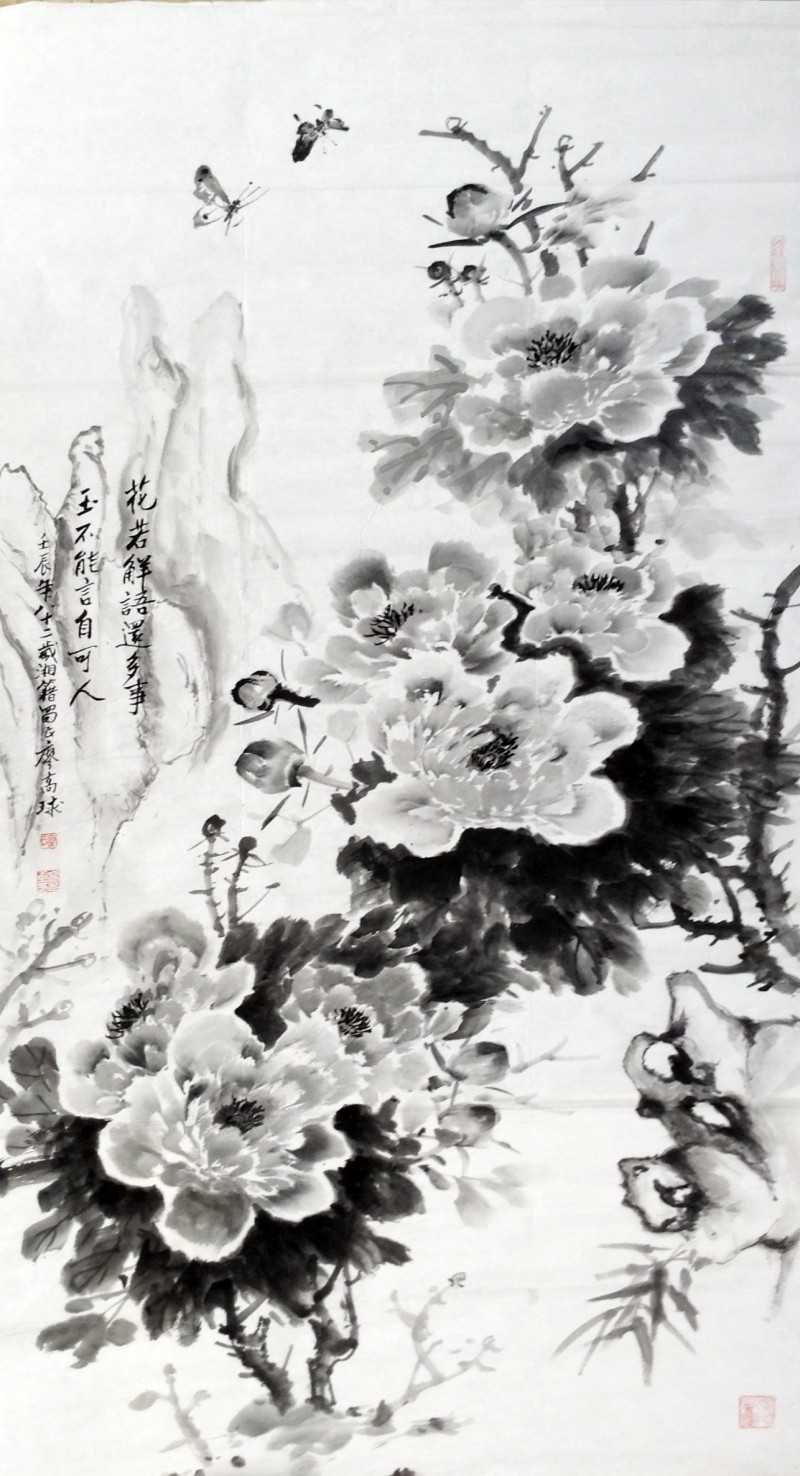 花若解語還多事
玉不能言自可人
壬辰年八十二歲湘籍蜀民廖高球